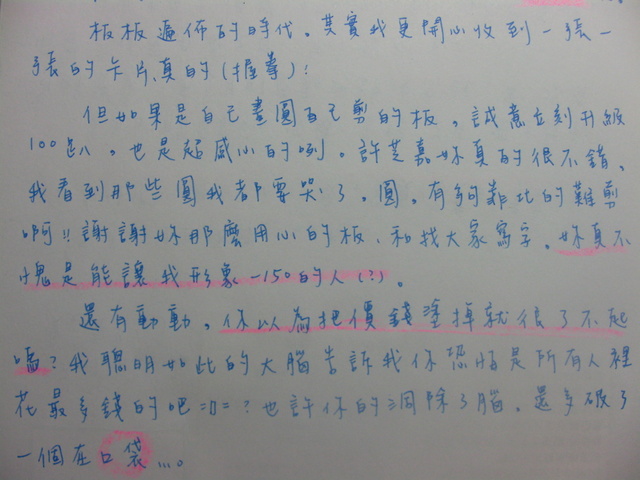 板板遍佈的時代。其實我更開心收到一張一
張的卡片,真的(握拳)!
但如果是自己畫圓自己剪的板,誠意立刻升級
100趴。也是超感心的咧。許芝嘉妳真的很不錯,
我看到那些圓我都要哭了。圓。有夠靠北的難剪
啊!!謝謝妳那麼用心的板、和找大家寫字。妳真不
愧是能讓我形象-150的人(?)。
還有動動。你以為把價錢塗掉就很了不起
嗎?我聰明如此的大腦告訴我你恐怕是所有人裡
花最多錢的吧=口=?也許你的洞除了腦,還多破了
一個在口袋...。